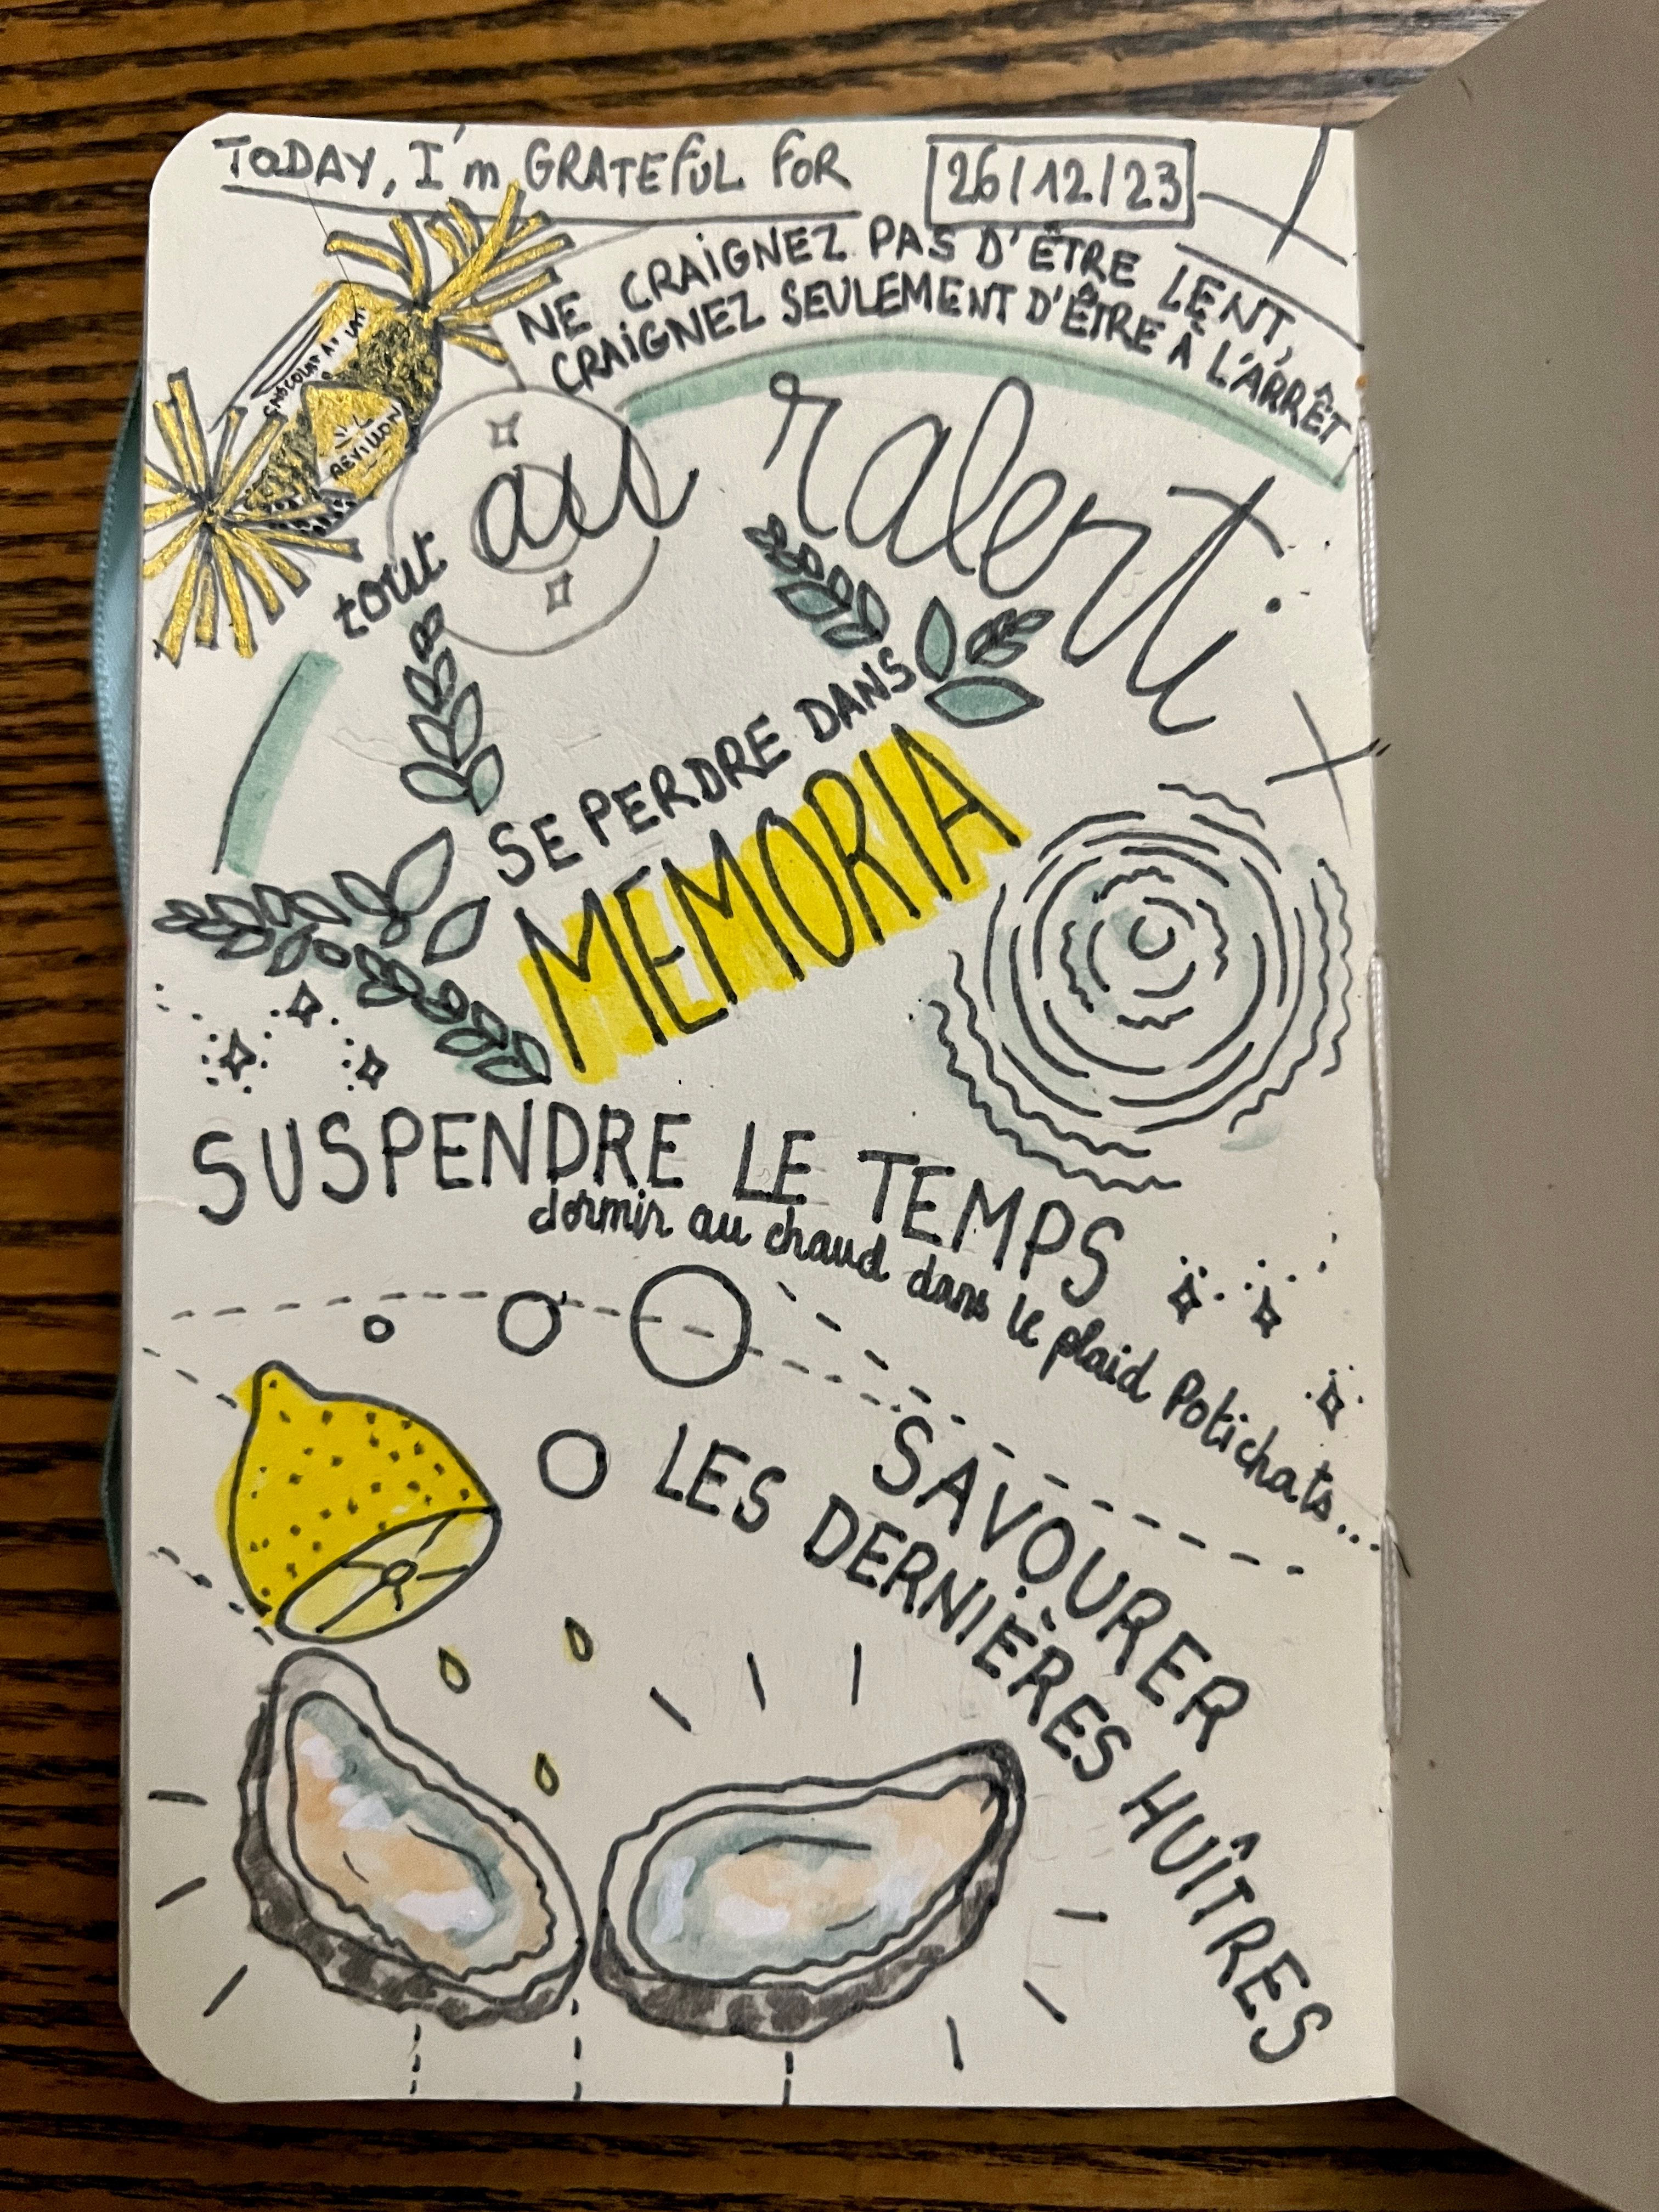 TODAY, I'm GRATEFUL FOR
26/12/23
NE CRAIGNEZ PAS D'ÊTRE LENT,
CRAIGNEZ SEULEMENT D'ÊTRE À L'ARRÊT
CHOCOLAT AU LAIT
REVILLON
tout au ralenti
SE PERDRE DANS
MEMORIA
SUSPENDRE LE TEMPS
dormir au chaud dans le plaid Potichats...
SAVOURER
LES DERNIÈRES HUÎTRES